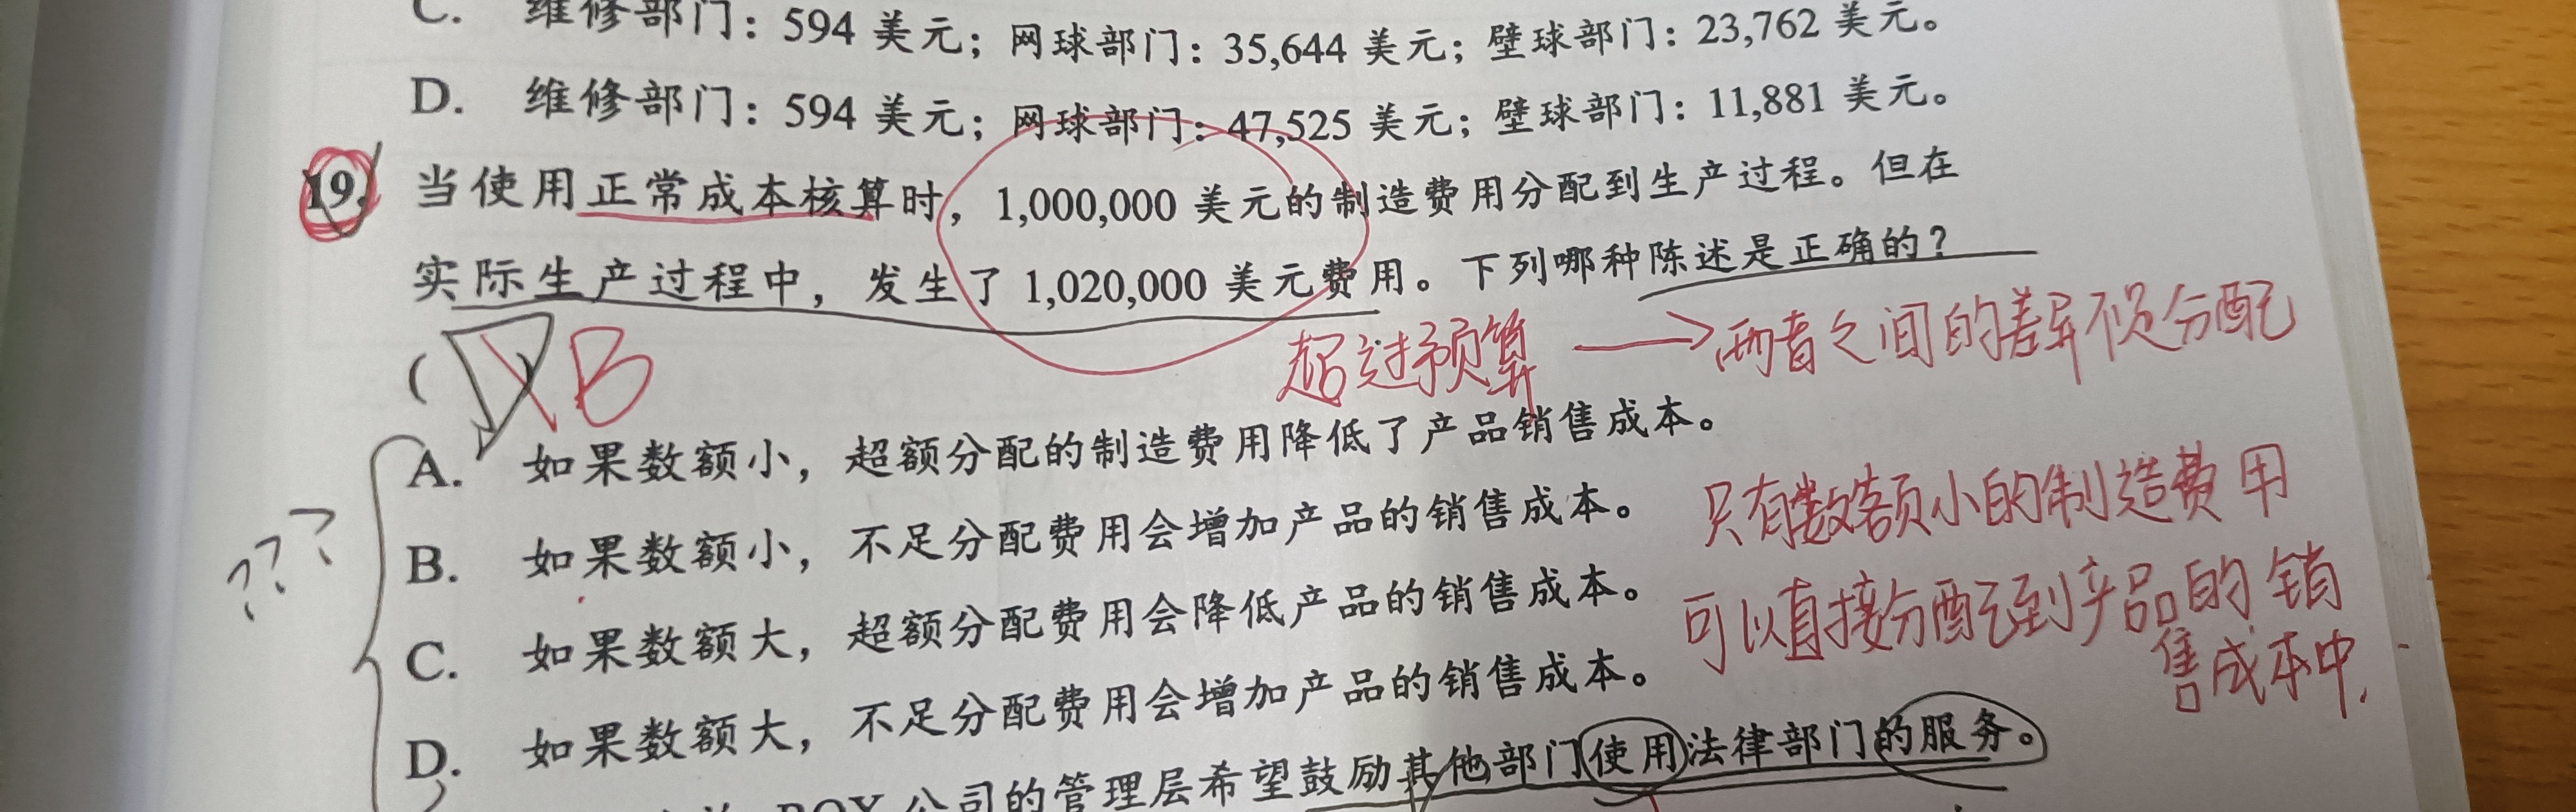 C. 维修部门：594 美元；网球部门：35,644 美元；壁球部门：23,762 美元。
D. 维修部门：594 美元；网球部门：47,525 美元；壁球部门：11,881 美元。
19. 当使用正常成本核算时，1,000,000 美元的制造费用分配到生产过程。但在
实际生产过程中，发生了 1,020,000 美元费用。下列哪种陈述是正确的？
超过预算 → 两者之间的差异不足分配
( D ) B
A. 如果数额小，超额分配的制造费用降低了产品销售成本。
B. 如果数额小，不足分配费用会增加产品的销售成本。
只有数额小的制造费用
C. 如果数额大，超额分配费用会降低产品的销售成本。
可以直接分配到产品的销
售成本中.
???
D. 如果数额大，不足分配费用会增加产品的销售成本。
BOX 公司的管理层希望鼓励其他部门使用法律部门的服务。